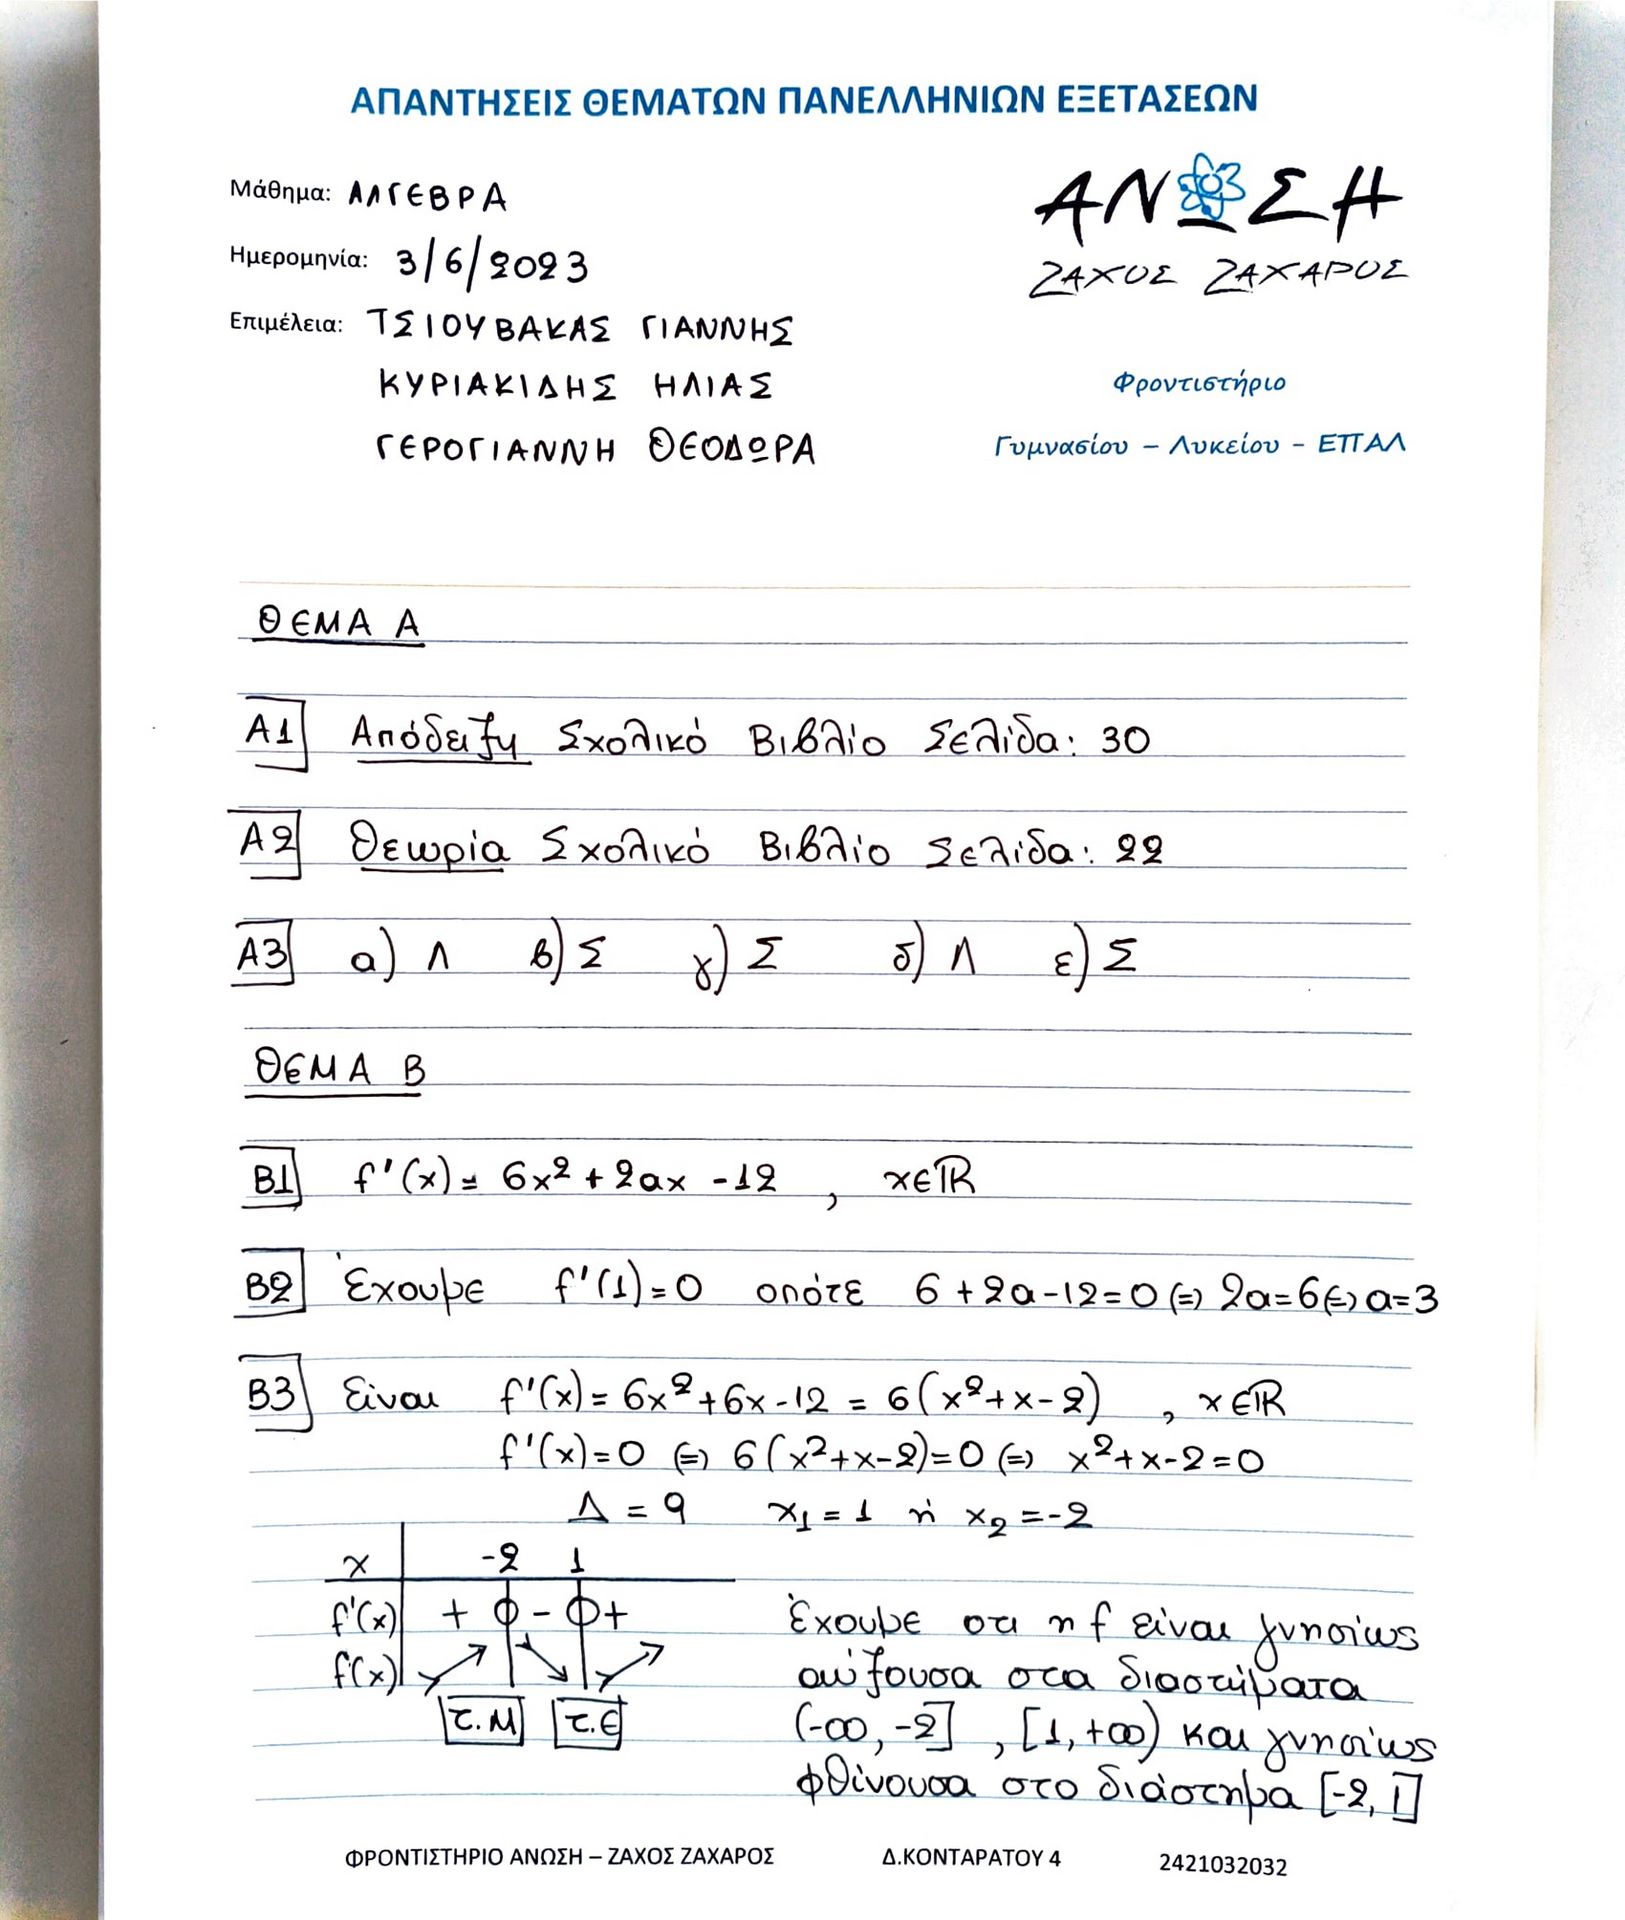 ΑΠΑΝΤΗΣΕΙΣ ΘΕΜΑΤΩΝ ΠΑΝΕΛΛΗΝΙΩΝ ΕΞΕΤΑΣΕΩΝ
Μάθημα: ΑΛΓΕΒΡΑ
ΑΝΩΣΗ
Ημερομηνία: 3/6/2023
ΖΑΧΟΣ ΖΑΧΑΡΟΣ
Επιμέλεια: ΤΣΙΟΥΒΑΚΑΣ ΓΙΑΝΝΗΣ
ΚΥΡΙΑΚΙΔΗΣ ΗΛΙΑΣ
Φροντιστήριο
ΓΕΡΟΓΙΑΝΝΗ ΘΕΟΔΩΡΑ
Γυμνασίου – Λυκείου – ΕΠΑΛ
ΘΕΜΑ Α
Α1 Απόδειξη Σχολικό Βιβλίο Σελίδα: 30
Α2 Θεωρία Σχολικό Βιβλίο Σελίδα: 22
Α3 α) Λ β) Σ γ) Σ δ) Λ ε) Σ
ΘΕΜΑ Β
Β1 f'(x) = 6x² + 2αx - 12 , x∈ℝ
Β2 Έχουμε f'(1) = 0 οπότε 6 + 2α - 12 = 0 (=) 2α = 6 (=) α = 3
Β3 Είναι f'(x) = 6x² + 6x - 12 = 6(x² + x - 2) , x∈ℝ
f'(x) = 0 (=) 6(x² + x - 2) = 0 (=) x² + x - 2 = 0
Δ = 9 x₁ = 1 ή x₂ = -2
x -2 1
f'(x) + 0 - 0 +
f(x) ↗ ↘ ↗
τ.Μ τ.Ε
Έχουμε οτι η f είναι γνησίως
αύξουσα στα διαστήματα
(-∞, -2] , [1, +∞) και γνησίως
φθίνουσα στο διάστημα [-2, 1]
ΦΡΟΝΤΙΣΤΗΡΙΟ ΑΝΩΣΗ – ΖΑΧΟΣ ΖΑΧΑΡΟΣ Δ.ΚΟΝΤΑΡΑΤΟΥ 4 2421032032